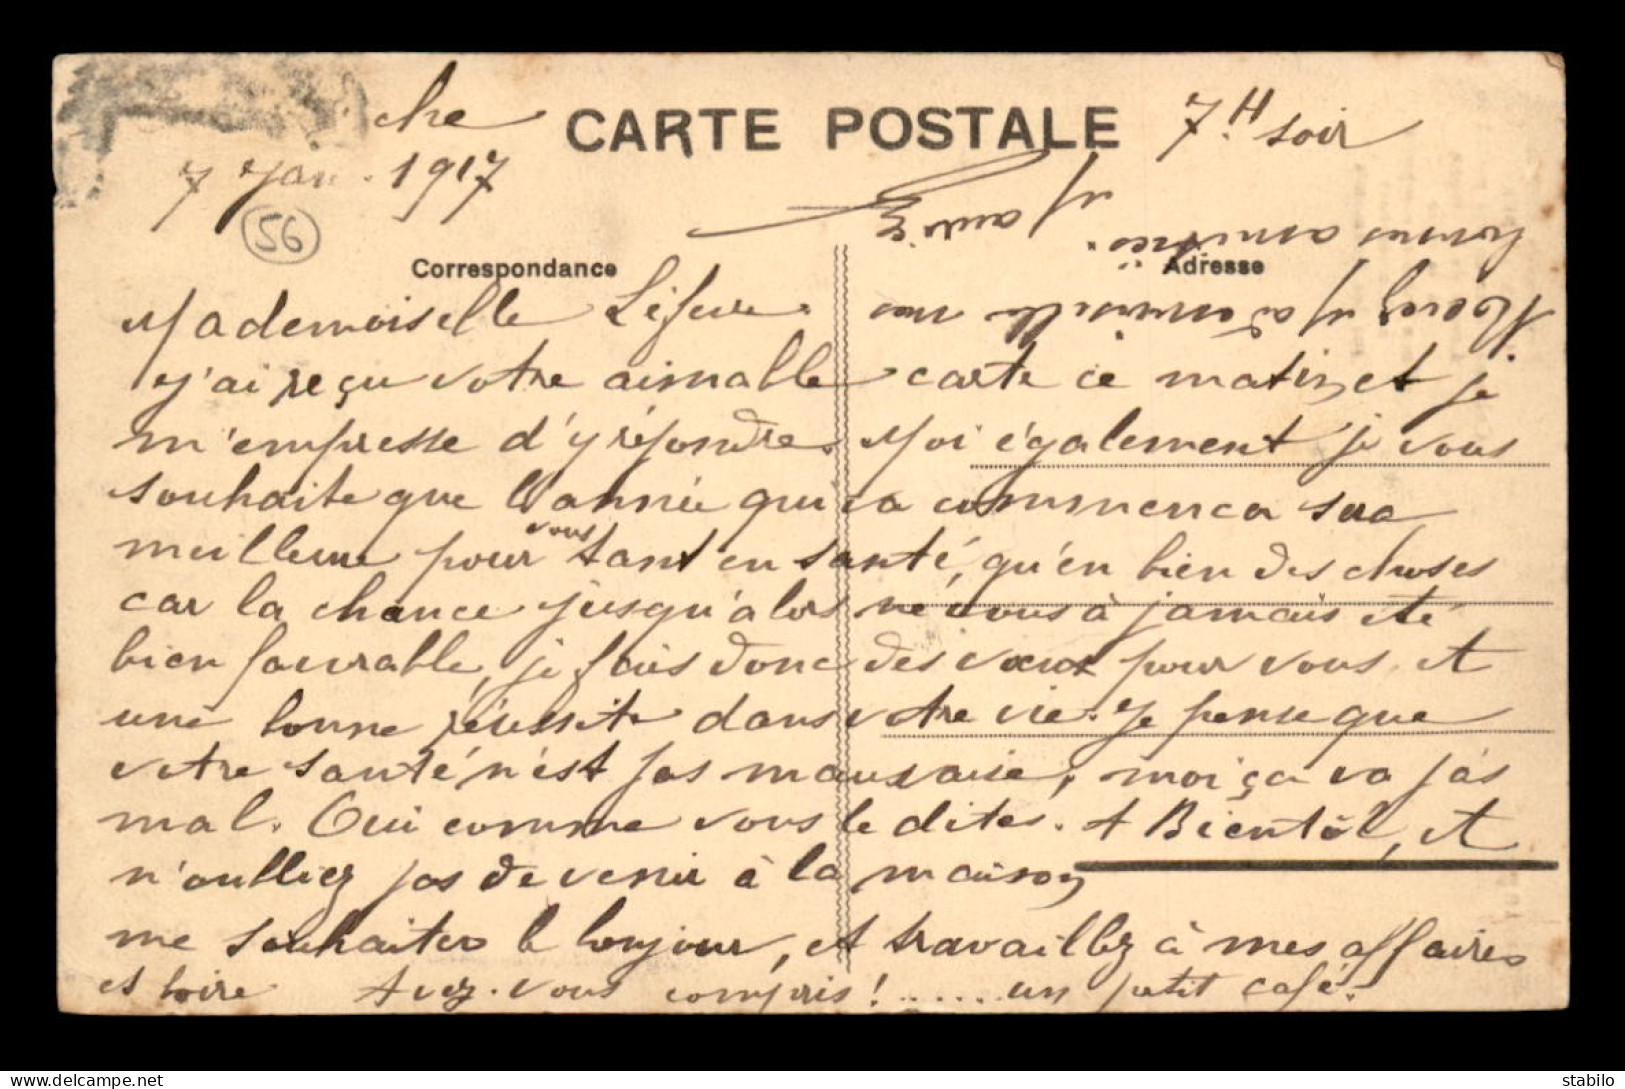 che
CARTE POSTALE
7H soir
7 Jan. 1917
56
Correspondance
Adresse
Mademoiselle Lefeuvre.
j'ai reçu votre aimable carte ce matin, et je
m'empresse d'y répondre. Moi également je vous
souhaite que l'année qui va commencer sera
meilleure pour vous tant en santé, qu'en bien des choses
car la chance jusqu'alors ne vous à jamais été
bien favorable, je fais donc des vœux pour vous et
une bonne réussite dans votre vie. Je pense que
votre santé n'est pas mauvaise, moi ça va pas
mal. Oui comme vous le dites. A Bientôt, et
n'oubliez pas de venir à la maison
me souhaiter le bonjour, et travaillez à mes affaires
et boire Avez-vous compris! ..... un petit café.
Recevez Mademoiselle mes
bonnes amitiés.